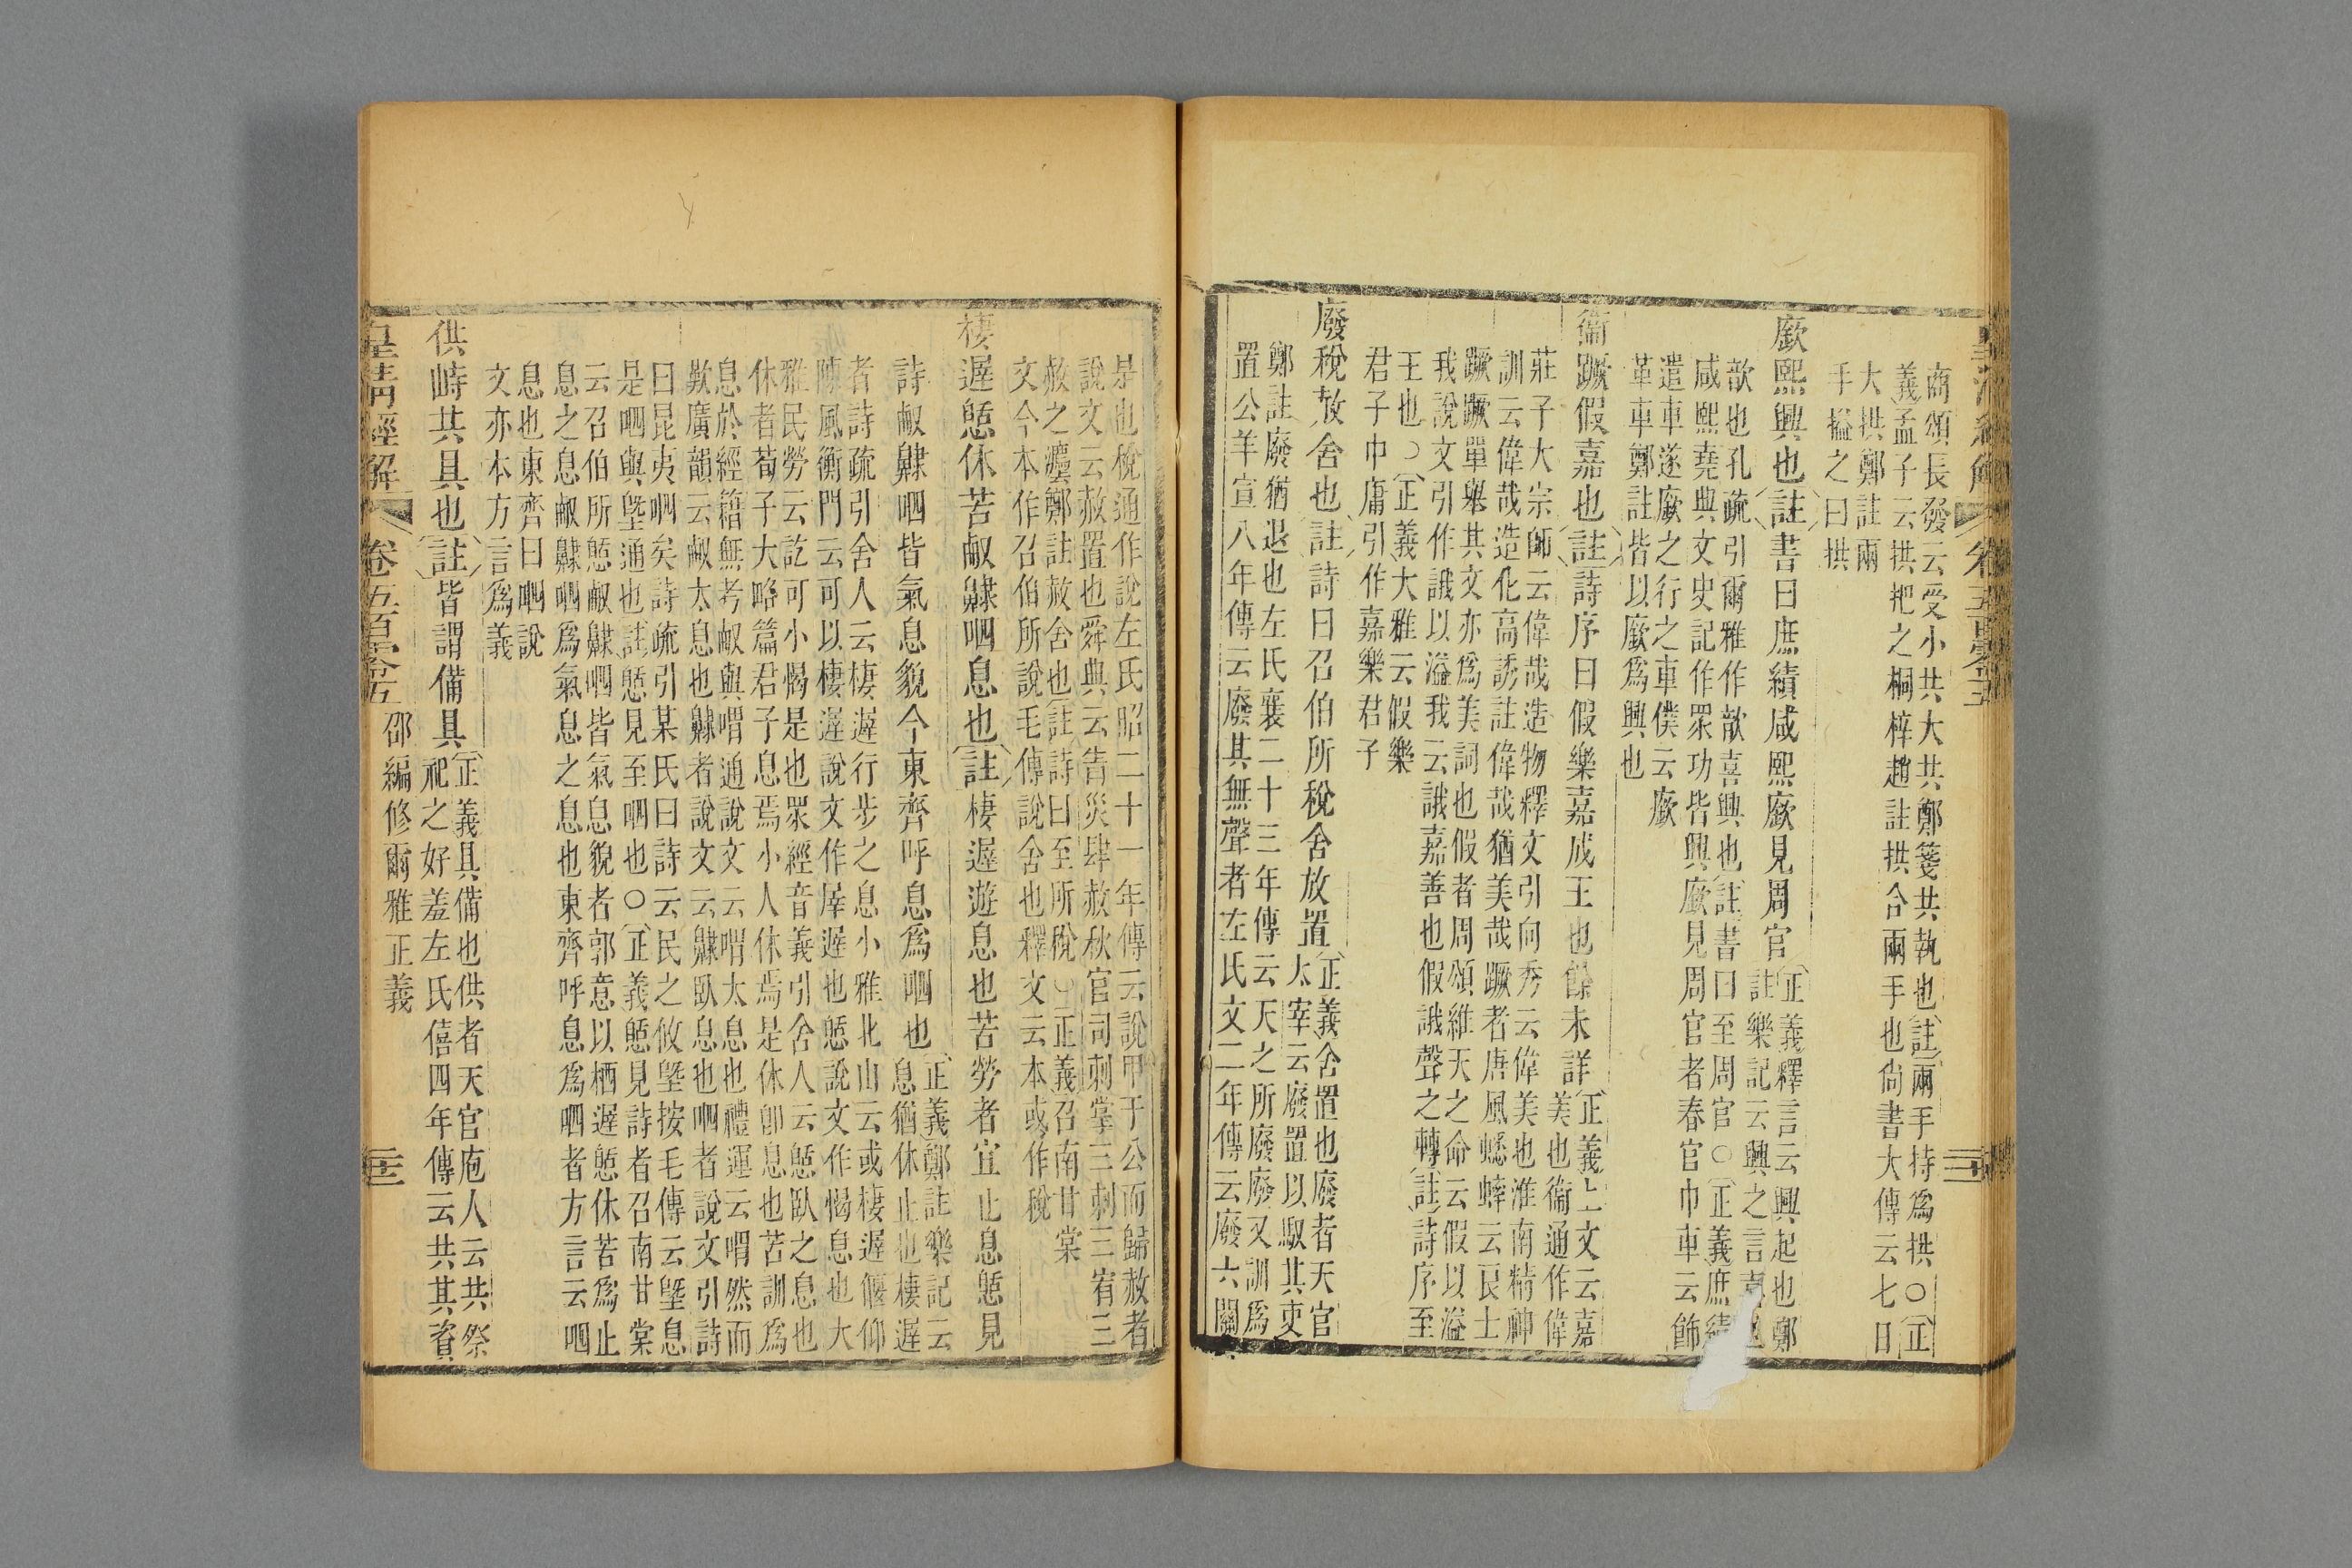 商頌長發云受小共大共鄭箋共執也註兩手持爲拱○正
義孟子云拱把之桐梓趙註拱合兩手也尙書大傳云七日
大拱鄭註兩
手搤之曰拱
廞熙興也註書曰庶績咸熙廞見周官正義釋言云興起也鄭
註樂記云興之言喜也
歆也孔疏引爾雅作歆喜興也註書曰至周官○正義庶績
咸熙堯典文史記作眾功皆興廞見周官者春官巾車云飾
遣車遂廞之行之車僕云廞
革車鄭註皆以廞爲興也
衞蹶假嘉也註詩序曰假樂嘉成王也餘未詳正義上文云嘉
美也衞通作偉
莊子大宗師云偉哉造物釋文引向秀云偉美也淮南精神
訓云偉哉造化高誘註偉哉猶美哉蹶者唐風蟋蟀云良士
蹶蹶單舉其文亦爲美詞也假者周頌維天之命云假以溢
我說文引作誐以溢我云誐嘉善也假誐聲之轉註詩序至
王也○正義大雅云假樂
君子中庸引作嘉樂君子
廢稅赦舍也註詩曰召伯所稅舍放置正義舍置也廢者天官
太宰云廢置以馭其吏
鄭註廢猶退也左氏襄二十三年傳云天之所廢廢又訓爲
置公羊宣八年傳云廢其無聲者左氏文二年傳云廢六關
是也稅通作說左氏昭二十一年傳云說甲于公而歸赦者
說文云赦置也舜典云眚災肆赦秋官司刺掌三刺三宥三
赦之灋鄭註赦舍也註詩曰至所稅○正義召南甘棠
文今本作召伯所說毛傳說舍也釋文云本或作稅
棲遲憩休苦㕢齂呬息也註棲遲遊息也苦勞者宜止息憩見
詩㕢齂呬皆氣息貌今東齊呼息爲呬也正義鄭註樂記云
息猶休止也棲遲
者詩疏引舍人云棲遲行步之息小雅北山云或棲遲偃仰
陳風衡門云可以棲遲說文作屖遲也憩說文作愒息也大
雅民勞云訖可小愒是也眾經音義引舍人云憩臥之息也
休者荀子大略篇君子息焉小人休焉是休卽息也苦訓爲
息於經籍無考㕢與喟通說文云喟太息也禮運云喟然而
歎廣韻云㕢太息也齂者說文云齂臥息也呬者說文引詩
曰昆夷呬矣詩疏引某氏曰詩云民之攸塈按毛傳云塈息
是呬與塈通也註憩見至呬也○正義憩見詩者召南甘棠
云召伯所憩㕢齂呬皆氣息貌者郭意以栖遲憩休苦爲止
息之息㕢齂呬爲氣息之息也東齊呼息爲呬者方言云呬
息也東齊曰呬說
文亦本方言爲義
供峙共具也註皆謂備具正義具備也供者天官庖人云共祭
祀之好羞左氏僖四年傳云共其資
皇清經解 卷五百零五 邵編修爾雅正義